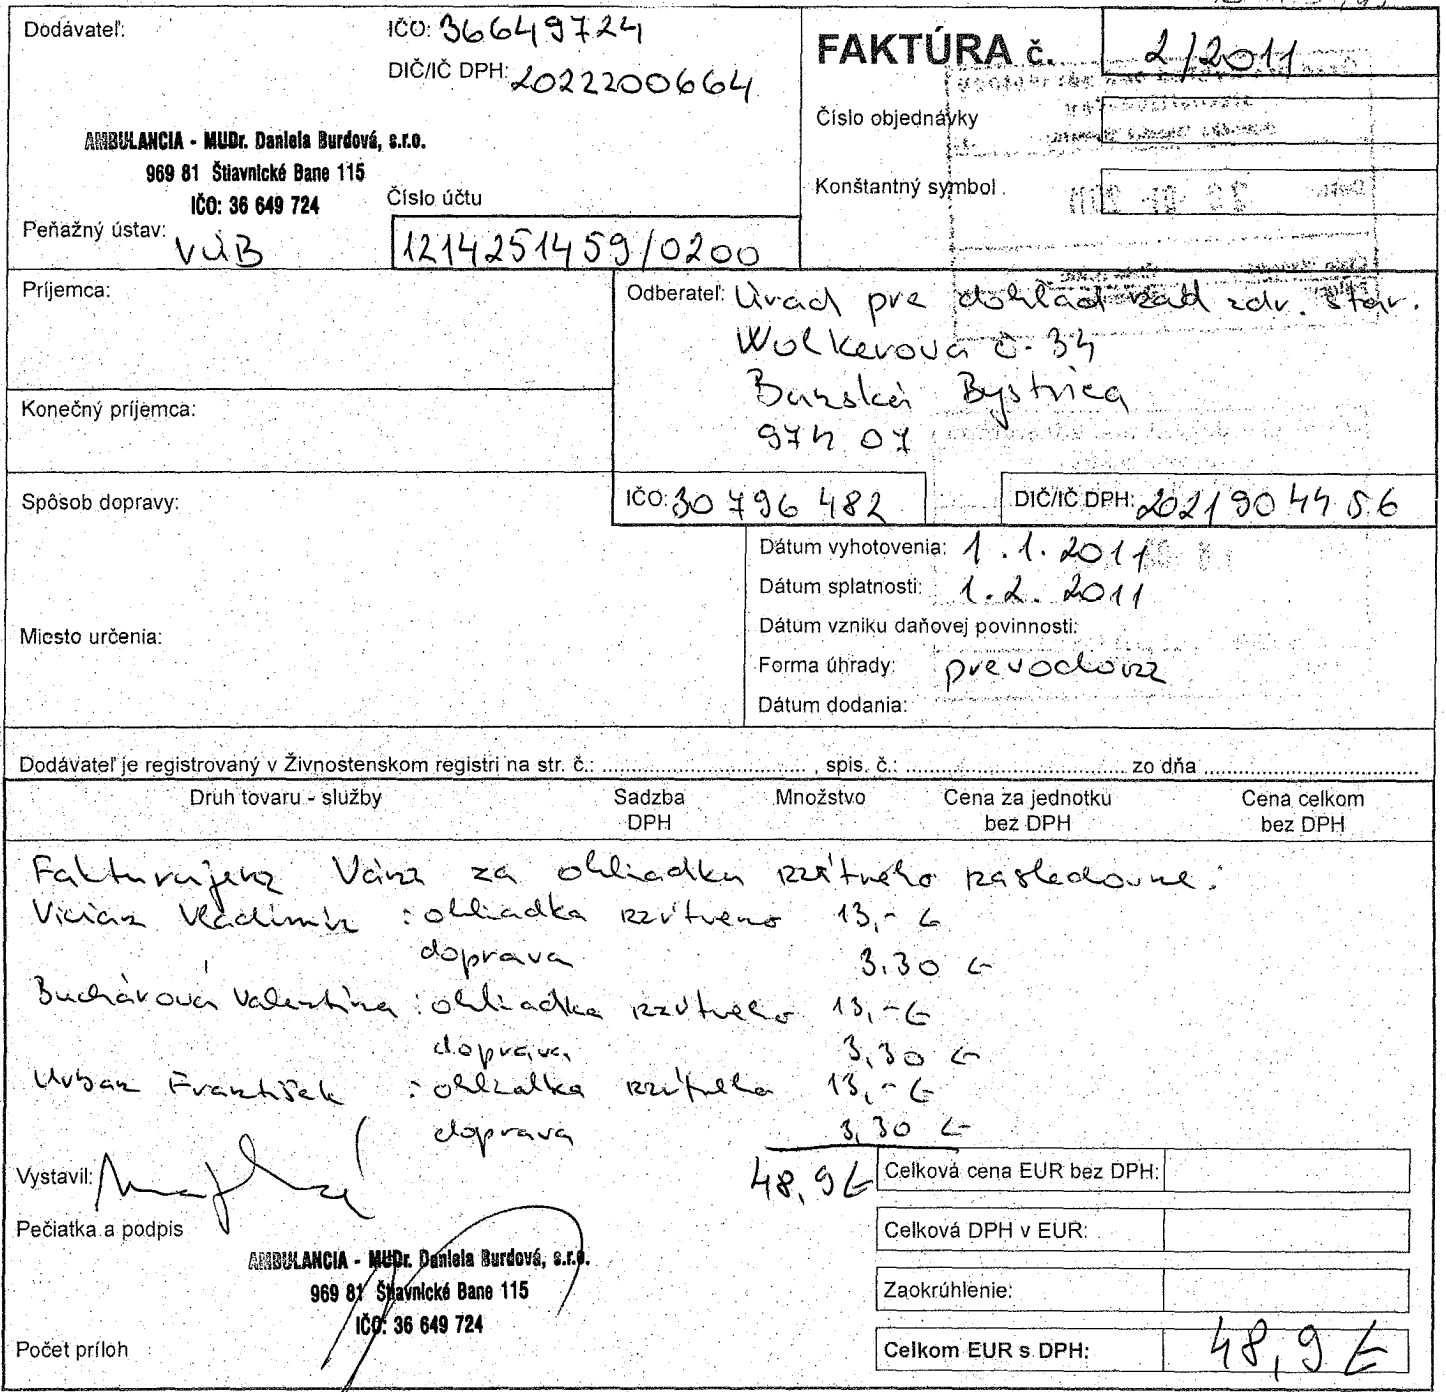 Dodávateľ:
IČO: 36649724
DIČ/IČ DPH: 2022200664
AMBULANCIA - MUDr. Daniela Burdová, s.r.o.
969 81 Štiavnické Bane 115
IČO: 36 649 724
Číslo účtu
Peňažný ústav: VÚB
1214251459/0200
FAKTÚRA č. 2/2011
Číslo objednávky
Konštantný symbol
Príjemca:
Odberateľ: Úrad pre dohľad nad zdr. star.
Wolkerova č. 34
Banská Bystrica
974 07
Konečný príjemca:
IČO: 30 796 482
DIČ/IČ DPH: 2021904456
Spôsob dopravy:
Dátum vyhotovenia: 1.1.2011
Dátum splatnosti: 1.2.2011
Dátum vzniku daňovej povinnosti:
Miesto určenia:
Forma úhrady: prevodom
Dátum dodania:
Dodávateľ je registrovaný v Živnostenskom registri na str. č.: , spis. č.: zo dňa
Druh tovaru - služby Sadzba DPH Množstvo Cena za jednotku bez DPH Cena celkom bez DPH
Fakturujem Vám za ohliadku mŕtveho nasledovne:
Vician Vladimír : ohliadka mŕtveho 13,- €
doprava 3.30 €
Buchárová Valentína : ohliadka mŕtveho 13,- €
doprava 3,30 €
Urban František : ohliadka mŕtveho 13,- €
doprava 3,30 €
48,9 €
Vystavil:
Celková cena EUR bez DPH:
Pečiatka a podpis
Celková DPH v EUR:
AMBULANCIA - MUDr. Daniela Burdová, s.r.o.
969 81 Štiavnické Bane 115
IČO: 36 649 724
Zaokrúhlenie:
Počet príloh
Celkom EUR s DPH: 48,9 €